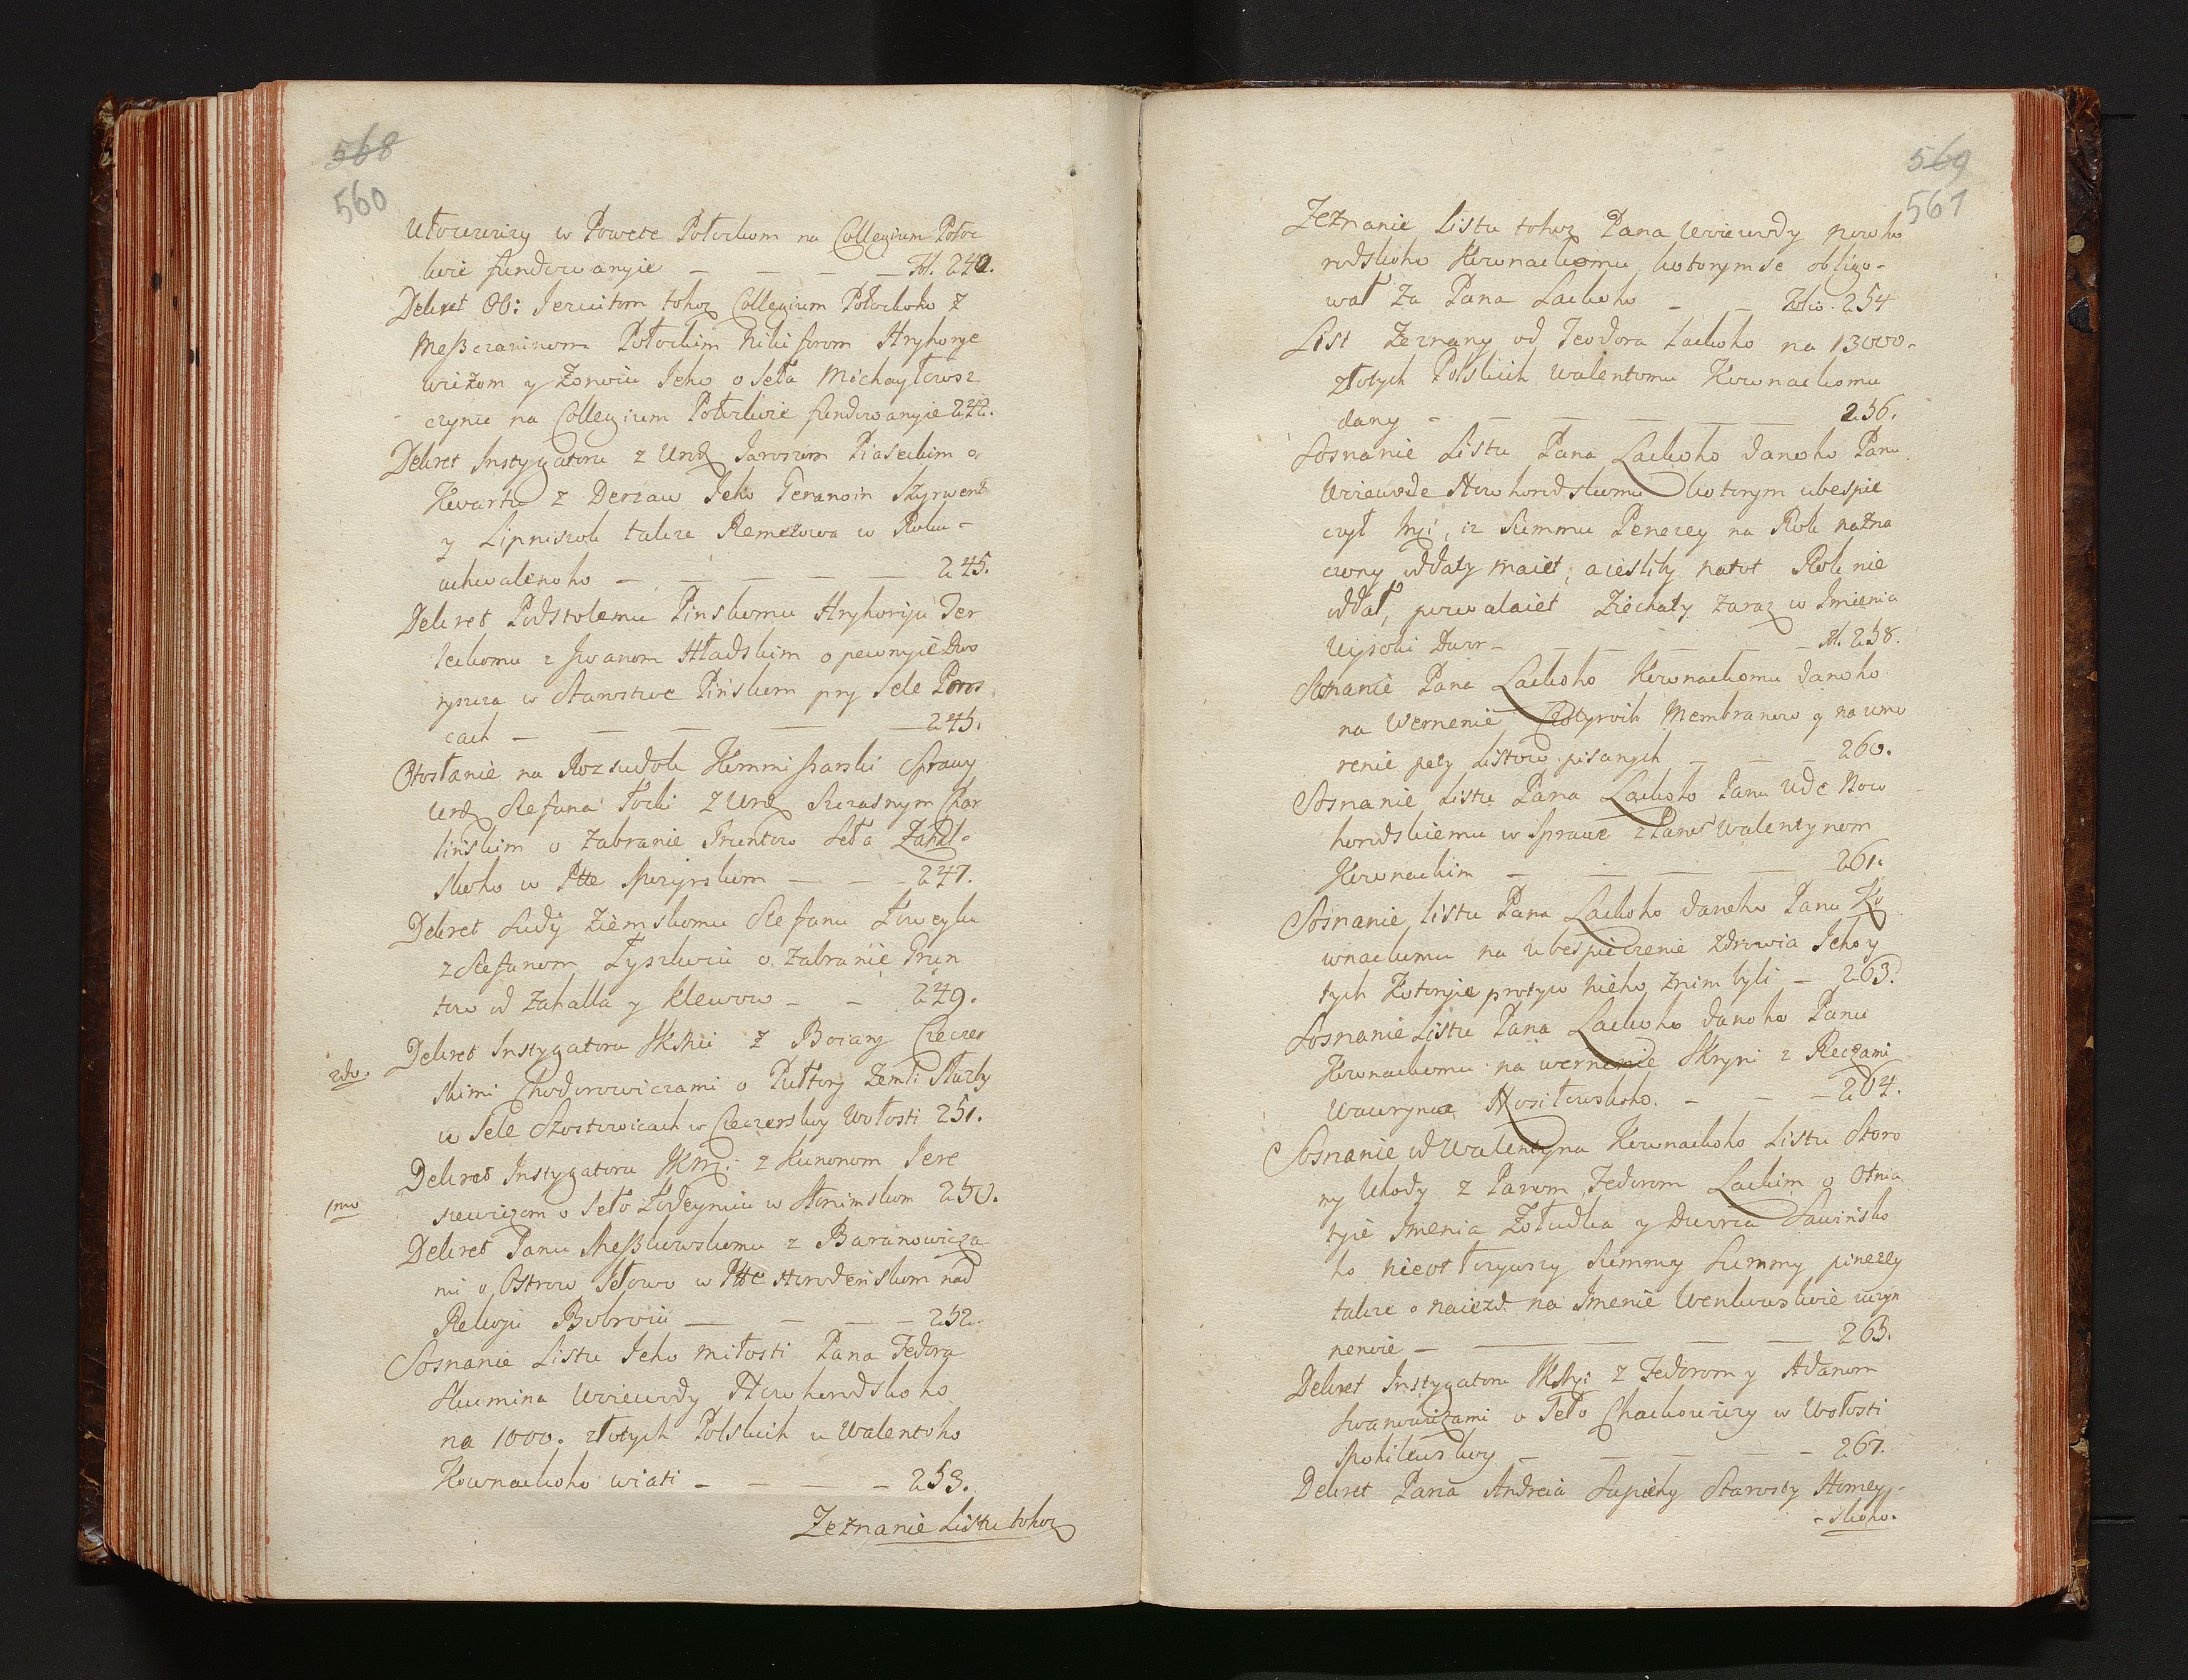 568
560
Utowiczy w Powete Połockom na Collegium Połoc
koie fundowanyie — — — — Fol. 240.
Dekret OO: Jezuitom tohoż Collegium Połockoho z
Meszczaninom Połockim Nikiforom Hryhorye
wiżom y Żonoiu Jeho o Seła Michayłowsz
czynu na Collegium Połockoie fundowanyie 242.
Dekret Instygatoru z Urd Jaroszem Piaseckim o
Kwartu z Derzaw Jeho Geranoin
y Lipniszok takze Remezowa w Roku-
uchwalenoho — — — — — 245.
Dekret Podstolemu Pinskomu Hryhoriju Ter
leckomu z Iwanom Hładskim o pewnyie Dwo
ryszcza w Starostwe Pińskom pry Sele Poros
cach — — — — 245.
Otosłanie na Rozsudok Kommissarski Sprawy
Urd Stefana Łozki z Urd Szczasnym Char
lińskim o zabranie Gruntow Seła
skoho w Ptte Mozyrskom — — — 247.
Dekret Sudÿ Ziemskomu Stefanu Łoweyku
z Stefanom Łyszkoiu o zabranie Grun
tow od Zahalla y Klewow — — 249.
2do.
Dekret Instygatoru JKMci z Boiary Czeczer
skimi Chodorowiczami o Pułtory Zemli Służby
w Sele Szostowicach w Czeczerskoy Wołosti 251.
Dekret Instygatoru JKMci z Kunonom Jere
1mo
miewiżom o Seło Łoweyniu w Słonimskom 250.
Dekret Panu Meszkowskomu z Baranowicza
mi o Ostrow Słowo w Ptte Horodeńskom nad
Rekoju Bobroiu — — — — 252.
Sosnanie Listu Jeho miłosti Pana Fedora
Skumina Woiewody Nowhorodskoho
na 1000. złotych Polskich u Walentoho
Kownackoho wiati — — — — 253.
Zeznanie Listu tohoż
569
561
Zeznanie Listu tohoż Pana Woiewody Nowho
rodskoho Kownackomu kotorym se obligo-
wał za Pana Lackoho — — Folio. 254
List Zeznany od Teodora Lackoho na 13000-
złotych Polskich Walentomu Kownackomu
dany — — — — — 256.
Sosnanie Listu Pana Lackoho danoho Panu
Woiewode Nowhorodskomu kotorym ubespie
czył iż Summu Penezey na Rok nazna
czony oddaty maiet, a iesliby natot Rok nie
oddał, pozwalaiet Ziechaty zaraz w Imienia
Wysoki Dwor — — — — — fol. 258.
Soznanie Pana Lackoho Kownackomu danoho
na Wernenie Czotyroch Membranow y na umo
renie pety Listow pisanych — — — 260.
Sosnanie Listu Pana Lackoho Panu Wde Now
horodskiemu w Sprawe z Panom Walentynom
Kownackim — — — — 261.
Sosnanie Listu Pana Lackoho danoho Panu Ko
wnackomu na ubespieczenie zdrowia Jeho y
tych Kotoryie protyw nieho znim byli — 263.
Sosnanie Listu Pana Lackoho danoho Panu
Kownackomu na wernenie Skryni z Reczami
Wawrynca Nosiłowskoho. — — — 264.
Sosnanie od Walentyna Kownackoho Listu Storo
ny Uhody z Panom Fedorom Lackim o Otnia
tyie Imenia Żołudka y Dworca Sawińsko
ho nieotłozywszy Summy Summy pinezey
takze o naiezd na Imenie Wenkowskoie uczyn
nenoie — — — — 265.
Dekret Instygatoru JKMci z Fedorom y Adamom
Iwanowiczami o Seło Chackowiczy w Wołosti
Mohilewskoy — — — — — 267.
Dekret Pana Andreia Sapiehy Starosty Homey-
-skoho.